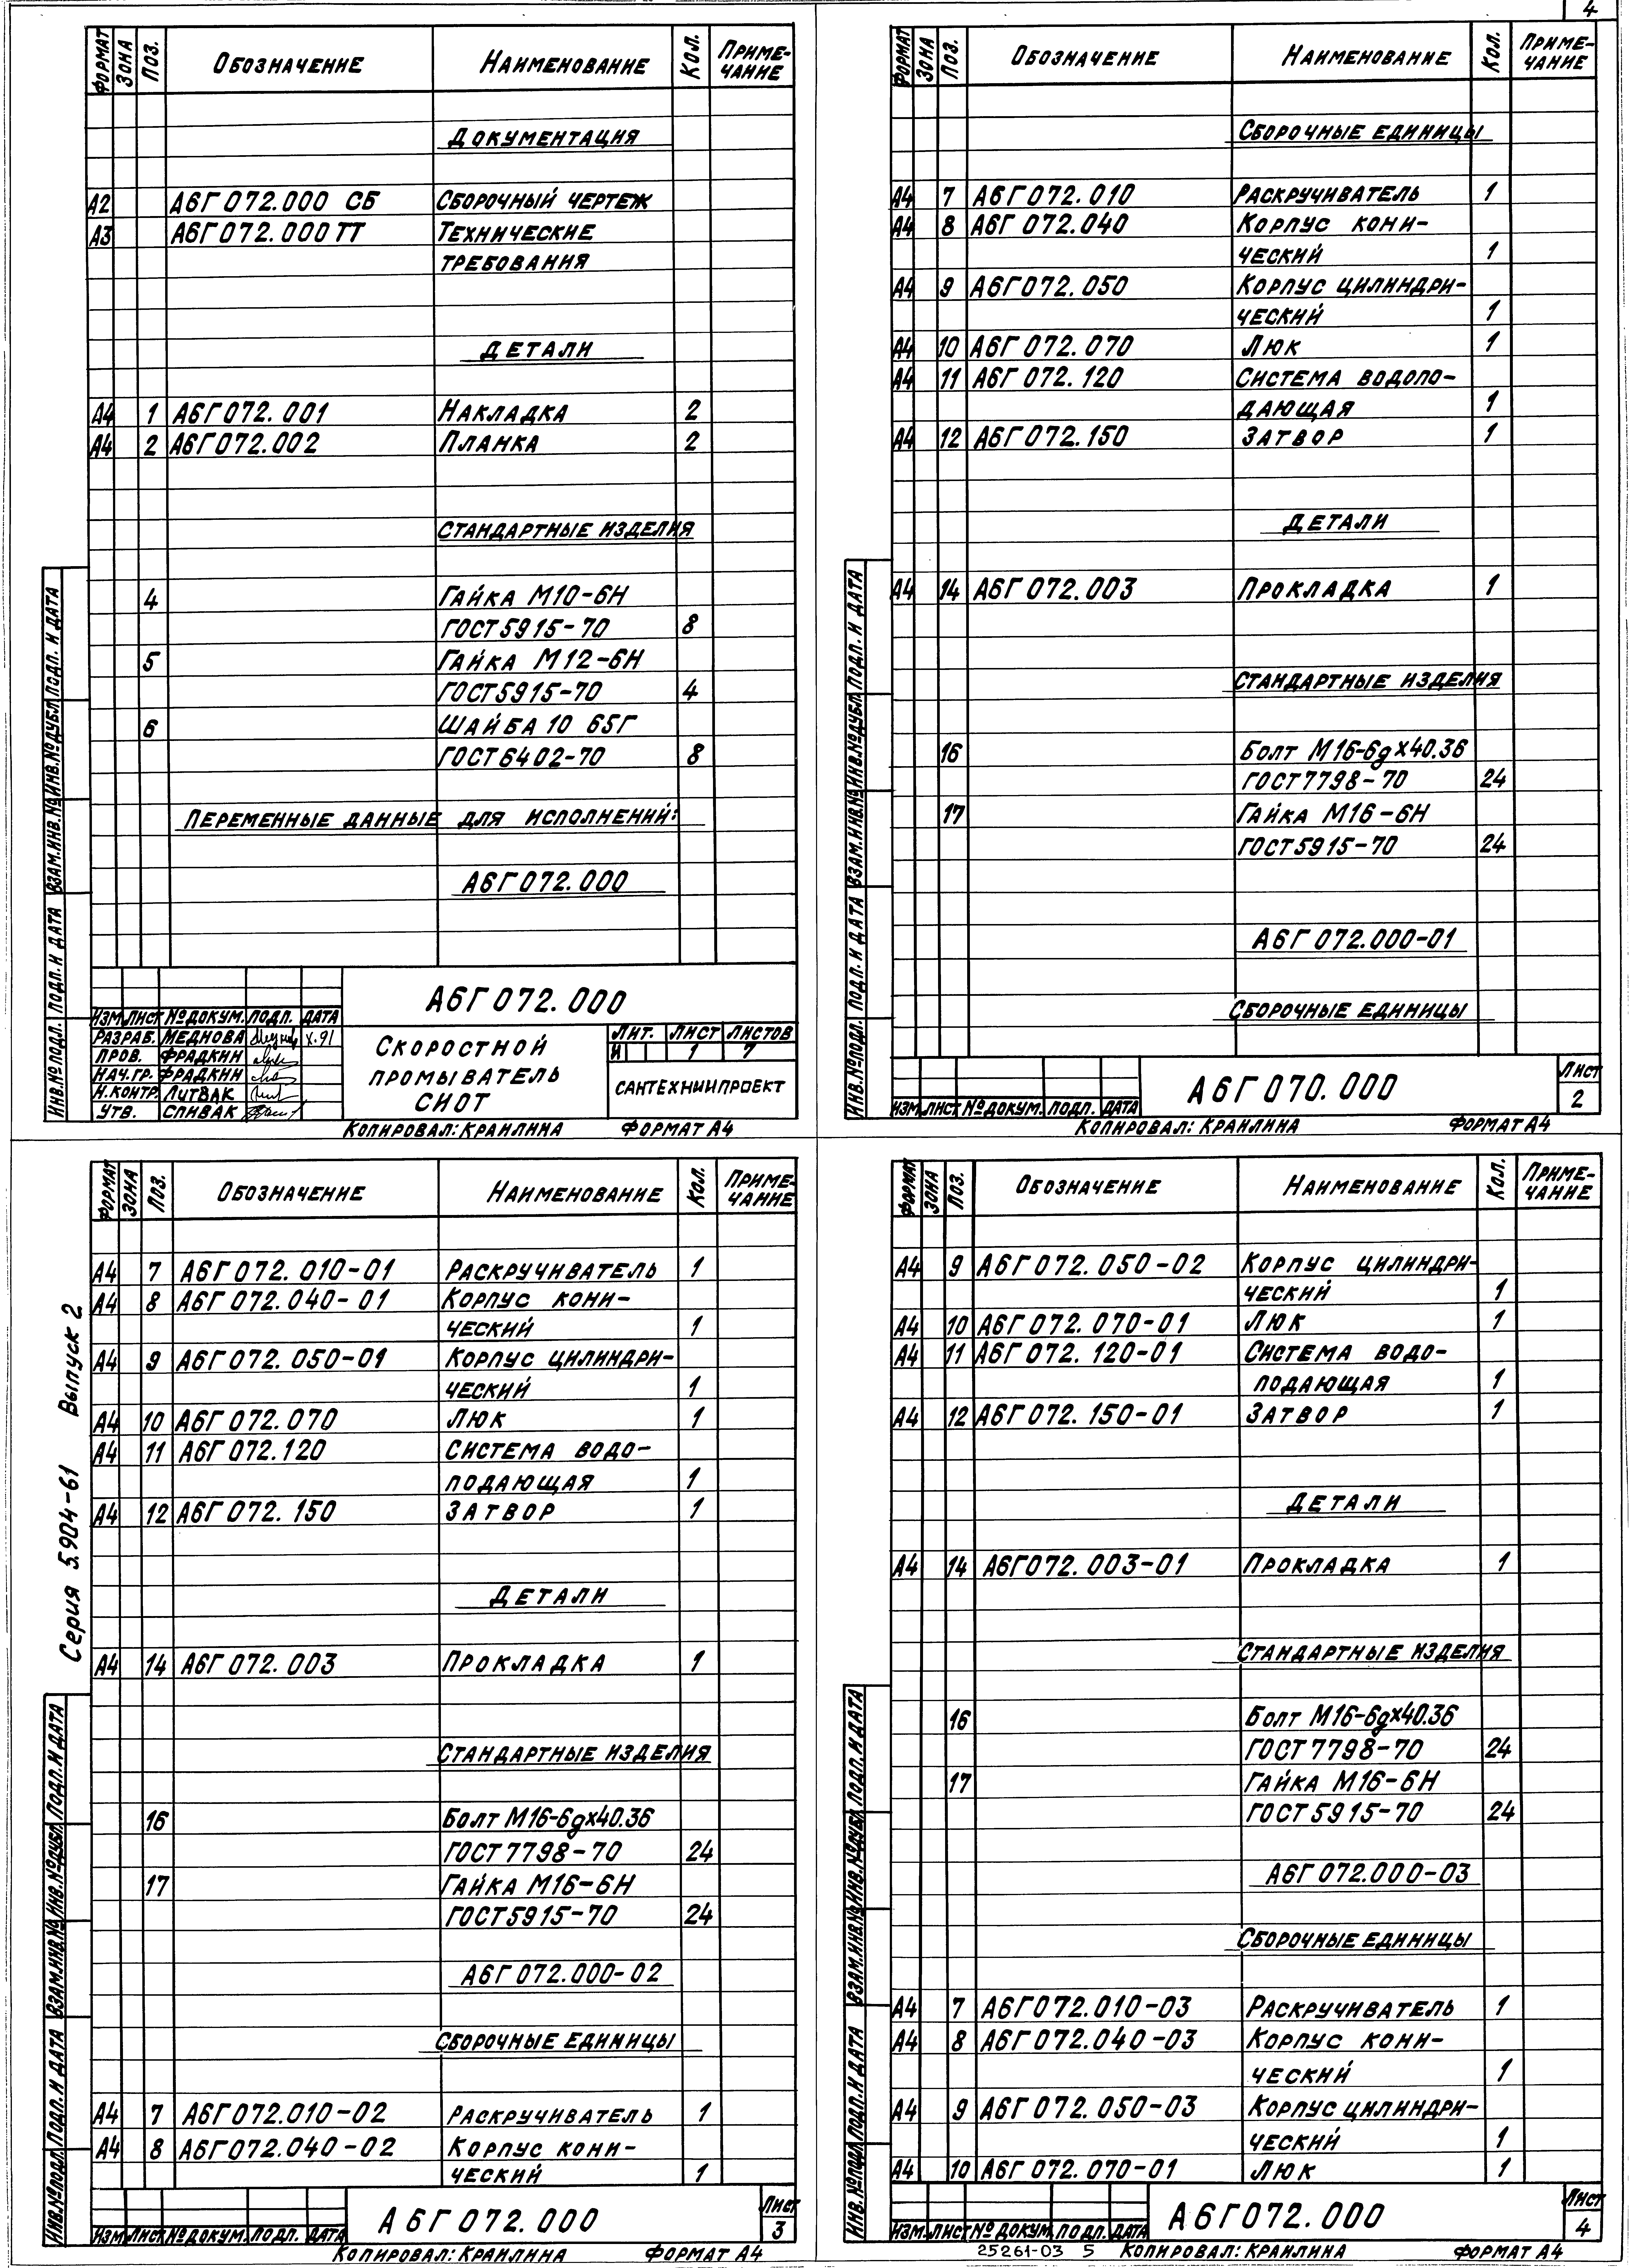 4
ФОРМАТ ЗОНА ПОЗ. ОБОЗНАЧЕНИЕ НАИМЕНОВАНИЕ КОЛ. ПРИМЕ-
ЧАНИЕ
ДОКУМЕНТАЦИЯ
А2 А6Г072.000 СБ СБОРОЧНЫЙ ЧЕРТЕЖ
А3 А6Г072.000 ТТ ТЕХНИЧЕСКИЕ
ТРЕБОВАНИЯ
ДЕТАЛИ
А4 1 А6Г072.001 НАКЛАДКА 2
А4 2 А6Г072.002 ПЛАНКА 2
СТАНДАРТНЫЕ ИЗДЕЛИЯ
4 ГАЙКА М10-6Н
ГОСТ 5915-70 8
5 ГАЙКА М12-6Н
ГОСТ 5915-70 4
6 ШАЙБА 10 65Г
ГОСТ 6402-70 8
ПЕРЕМЕННЫЕ ДАННЫЕ ДЛЯ ИСПОЛНЕНИЙ:
А6Г072.000
ИНВ.№ПОДЛ. ПОДП. И ДАТА ВЗАМ.ИНВ.№ ИНВ.№ДУБЛ. ПОДП. И ДАТА
А6Г072.000
ИЗМ ЛИСТ №ДОКУМ. ПОДП. ДАТА
РАЗРАБ. МЕДНОВА X.91
ПРОВ. ФРАДКИН
НАЧ.ГР. ФРАДКИН
Н.КОНТР ЛИТВАК
УТВ. СПИВАК
СКОРОСТНОЙ
ПРОМЫВАТЕЛЬ
СИОТ
ЛИТ. ЛИСТ ЛИСТОВ
И 1 7
САНТЕХНИИПРОЕКТ
КОПИРОВАЛ: КРАИЛИНА ФОРМАТ А4
ФОРМАТ ЗОНА ПОЗ. ОБОЗНАЧЕНИЕ НАИМЕНОВАНИЕ КОЛ. ПРИМЕ-
ЧАНИЕ
СБОРОЧНЫЕ ЕДИНИЦЫ
А4 7 А6Г072.010 РАСКРУЧИВАТЕЛЬ 1
А4 8 А6Г 072.040 КОРПУС КОНИ-
ЧЕСКИЙ 1
А4 9 А6Г072.050 КОРПУС ЦИЛИНДРИ-
ЧЕСКИЙ 1
А4 10 А6Г072.070 ЛЮК 1
А4 11 А6Г 072.120 СИСТЕМА ВОДОПО-
ДАЮЩАЯ 1
А4 12 А6Г072.150 ЗАТВОР 1
ДЕТАЛИ
А4 14 А6Г 072.003 ПРОКЛАДКА 1
СТАНДАРТНЫЕ ИЗДЕЛИЯ
16 БОЛТ М16-6gх40.36
ГОСТ 7798-70 24
17 ГАЙКА М16-6Н
ГОСТ 5915-70 24
А6Г 072.000-01
СБОРОЧНЫЕ ЕДИНИЦЫ
ИНВ.№ПОДЛ. ПОДП. И ДАТА ВЗАМ.ИНВ.№ ИНВ.№ДУБЛ. ПОДП. И ДАТА
ИЗМ. ЛИСТ №ДОКУМ. ПОДП. ДАТА
А6Г070.000
ЛИСТ
2
КОПИРОВАЛ: КРАИЛИНА ФОРМАТ А4
Серия 5.904-61 Выпуск 2
ФОРМАТ ЗОНА ПОЗ. ОБОЗНАЧЕНИЕ НАИМЕНОВАНИЕ КОЛ. ПРИМЕ-
ЧАНИЕ
А4 7 А6Г072.010-01 РАСКРУЧИВАТЕЛЬ 1
А4 8 А6Г 072.040-01 КОРПУС КОНИ-
ЧЕСКИЙ 1
А4 9 А6Г072.050-01 КОРПУС ЦИЛИНДРИ-
ЧЕСКИЙ 1
А4 10 А6Г 072.070 ЛЮК 1
А4 11 А6Г 072.120 СИСТЕМА ВОДО-
ПОДАЮЩАЯ 1
А4 12 А6Г 072.150 ЗАТВОР 1
ДЕТАЛИ
А4 14 А6Г 072.003 ПРОКЛАДКА 1
СТАНДАРТНЫЕ ИЗДЕЛИЯ
16 БОЛТ М16-6gх40.36
ГОСТ 7798-70 24
17 ГАЙКА М16-6Н
ГОСТ 5915-70 24
А6Г 072.000-02
СБОРОЧНЫЕ ЕДИНИЦЫ
А4 7 А6Г072.010-02 РАСКРУЧИВАТЕЛЬ 1
А4 8 А6Г072.040-02 КОРПУС КОНИ-
ЧЕСКИЙ 1
ИНВ.№ПОДЛ. ПОДП. И ДАТА ВЗАМ.ИНВ.№ ИНВ.№ДУБЛ. ПОДП. И ДАТА
ИЗМ. ЛИСТ №ДОКУМ. ПОДП. ДАТА
А6Г072.000
ЛИСТ
3
КОПИРОВАЛ: КРАИЛИНА ФОРМАТ А4
ФОРМАТ ЗОНА ПОЗ. ОБОЗНАЧЕНИЕ НАИМЕНОВАНИЕ КОЛ. ПРИМЕ-
ЧАНИЕ
А4 9 А6Г072.050-02 КОРПУС ЦИЛИНДРИ-
ЧЕСКИЙ 1
А4 10 А6Г 072.070-01 ЛЮК 1
А4 11 А6Г072.120-01 СИСТЕМА ВОДО-
ПОДАЮЩАЯ 1
А4 12 А6Г072.150-01 ЗАТВОР 1
ДЕТАЛИ
А4 14 А6Г072.003-01 ПРОКЛАДКА 1
СТАНДАРТНЫЕ ИЗДЕЛИЯ
16 БОЛТ М16-6gх40.36
ГОСТ 7798-70 24
17 ГАЙКА М16-6Н
ГОСТ 5915-70 24
А6Г 072.000-03
СБОРОЧНЫЕ ЕДИНИЦЫ
А4 7 А6Г072.010-03 РАСКРУЧИВАТЕЛЬ 1
А4 8 А6Г072.040-03 КОРПУС КОНИ-
ЧЕСКИЙ 1
А4 9 А6Г 072.050-03 КОРПУС ЦИЛИНДРИ-
ЧЕСКИЙ 1
А4 10 А6Г 072.070-01 ЛЮК 1
ИНВ.№ПОДЛ. ПОДП. И ДАТА ВЗАМ.ИНВ.№ ИНВ.№ДУБЛ. ПОДП. И ДАТА
ИЗМ. ЛИСТ № ДОКУМ. ПОДП. ДАТА
А6Г072.000
ЛИСТ
4
25261-03 5 КОПИРОВАЛ: КРАИЛИНА ФОРМАТ А4